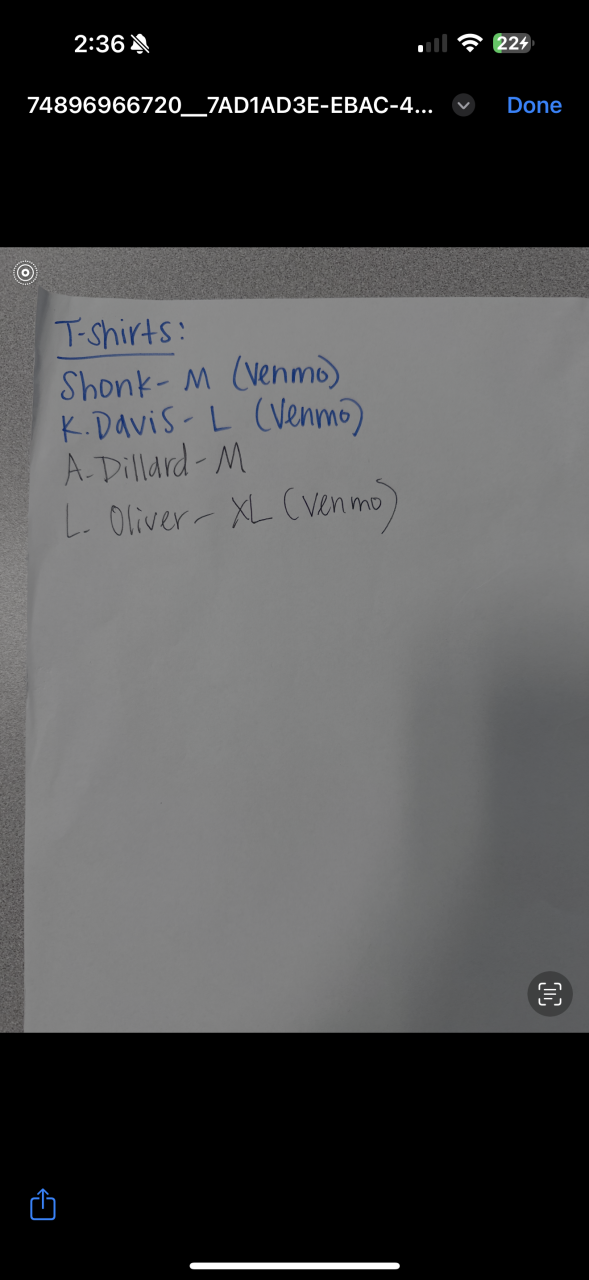 2:36
22
74896966720__7AD1AD3E-EBAC-4...
Done
T-shirts:
Shonk- M (Venmo)
K. Davis- L (Venmo)
A. Dillard- M
L. Oliver- XL (Venmo)